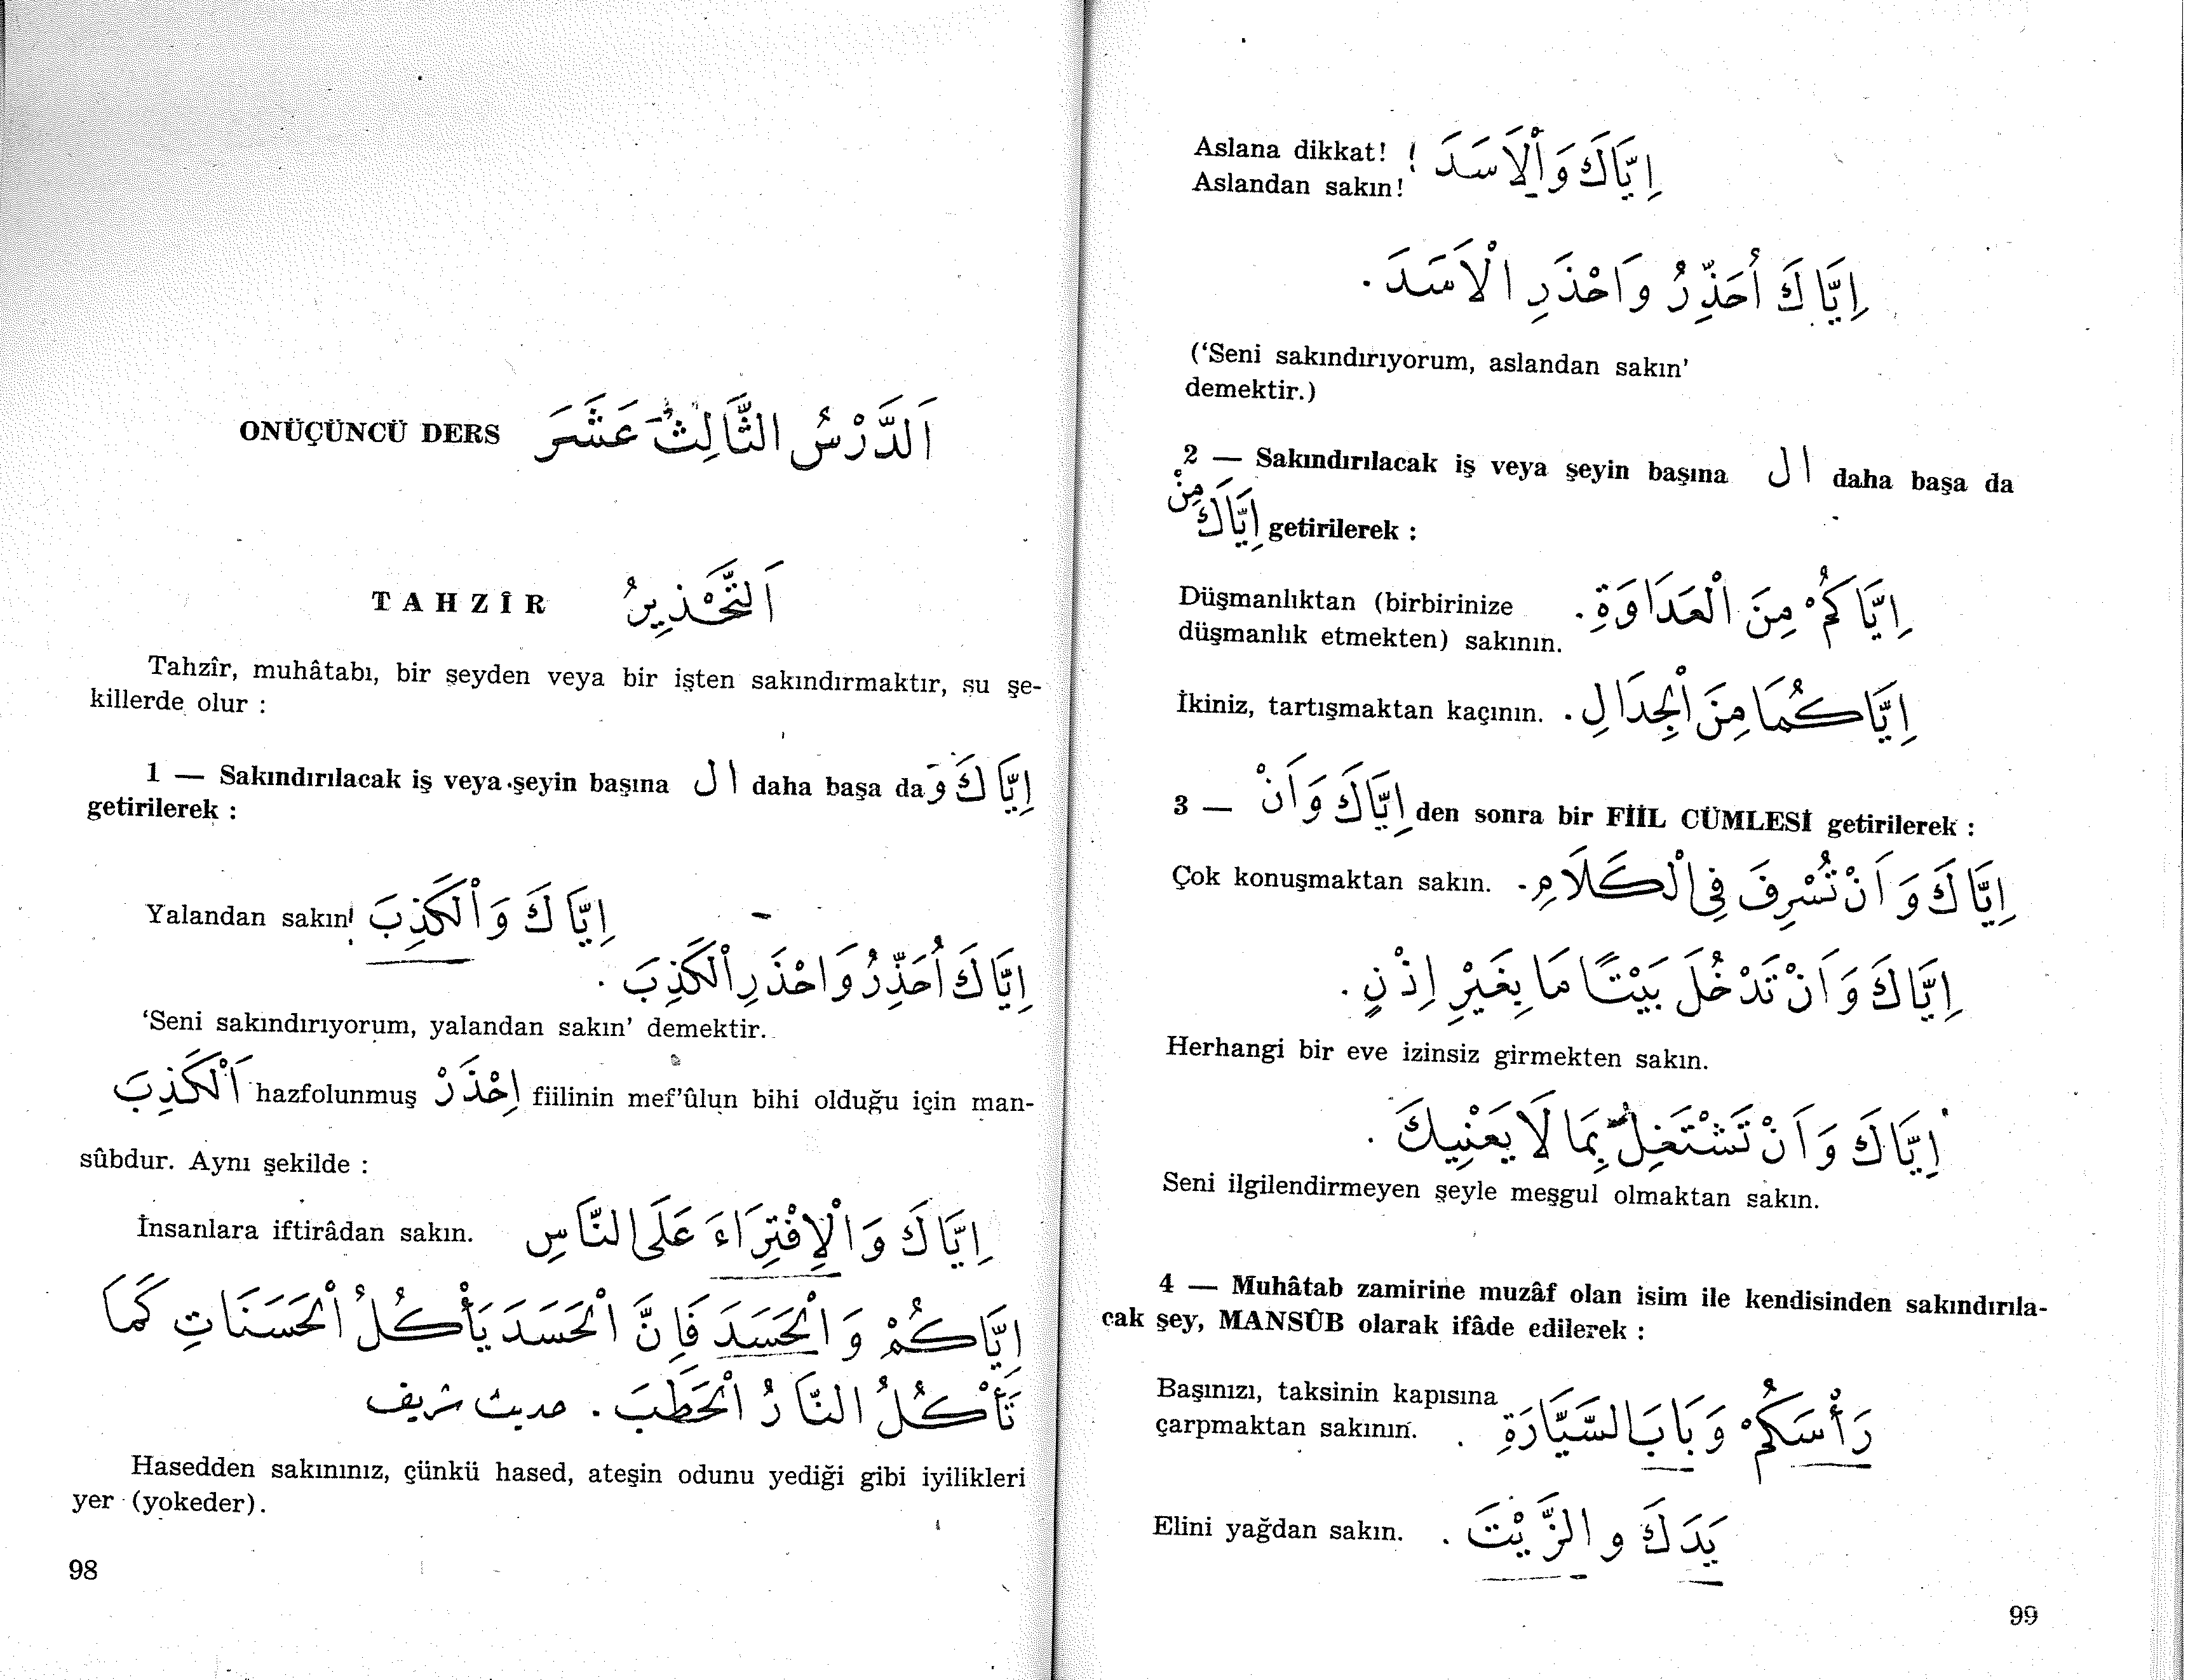 ONÜÇÜNCÜ DERS اَلدَّرْسُ الثَّالِثُ عَشَرَ
TAHZÎR اَلتَّحْذِيرُ
Tahzîr, muhâtabı, bir şeyden veya bir işten sakındırmaktır, şu şe-
killerde olur :
1 — Sakındırılacak iş veya şeyin başına ال daha başa da إِيَّاكَ وَ
getirilerek :
Yalandan sakın! إِيَّاكَ وَالْكَذِبَ
إِيَّاكَ أُحَذِّرُ وَاحْذَرِ الْكَذِبَ .
‘Seni sakındırıyorum, yalandan sakın’ demektir.
اَلْكَذِبَ hazfolunmuş اِحْذَرْ fiilinin mef’ûlun bihi olduğu için man-
sûbdur. Aynı şekilde :
İnsanlara iftirâdan sakın. إِيَّاكَ وَالْاِفْتِرَاءَ عَلَى النَّاسِ
إِيَّاكُمْ وَالْحَسَدَ فَإِنَّ الْحَسَدَ يَأْكُلُ الْحَسَنَاتِ كَمَا
تَأْكُلُ النَّارُ الْحَطَبَ . حديث شريف
Hasedden sakınınız, çünkü hased, ateşin odunu yediği gibi iyilikleri
yer (yokeder).
98
Aslana dikkat! إِيَّاكَ وَالْاَسَدَ !
Aslandan sakın!
إِيَّاكَ أُحَذِّرُ وَاحْذَرِ الْاَسَدَ .
(‘Seni sakındırıyorum, aslandan sakın’
demektir.)
2 — Sakındırılacak iş veya şeyin başına ال daha başa da
إِيَّاكَ مِنْ getirilerek :
Düşmanlıktan (birbirinize إِيَّاكُمْ مِنَ الْعَدَاوَةِ .
düşmanlık etmekten) sakının.
İkiniz, tartışmaktan kaçının. إِيَّاكُمَا مِنَ الْجِدَالِ .
3 — إِيَّاكَ وَاَنْ den sonra bir FİİL CÜMLESİ getirilerek :
Çok konuşmaktan sakın. إِيَّاكَ وَاَنْ تُسْرِفَ فِي الْكَلَامِ .
إِيَّاكَ وَاَنْ تَدْخُلَ بَيْتًا مَا بِغَيْرِ اِذْنٍ .
Herhangi bir eve izinsiz girmekten sakın.
إِيَّاكَ وَاَنْ تَشْتَغِلَ بِمَا لَا يَعْنِيكَ .
Seni ilgilendirmeyen şeyle meşgul olmaktan sakın.
4 — Muhâtab zamirine muzâf olan isim ile kendisinden sakındırıla-
cak şey, MANSÛB olarak ifâde edilerek :
Başınızı, taksinin kapısına رَأْسَكُمْ وَبَابَ السَّيَّارَةِ .
çarpmaktan sakının.
Elini yağdan sakın. يَدَكَ و الزَّيْتَ .
99